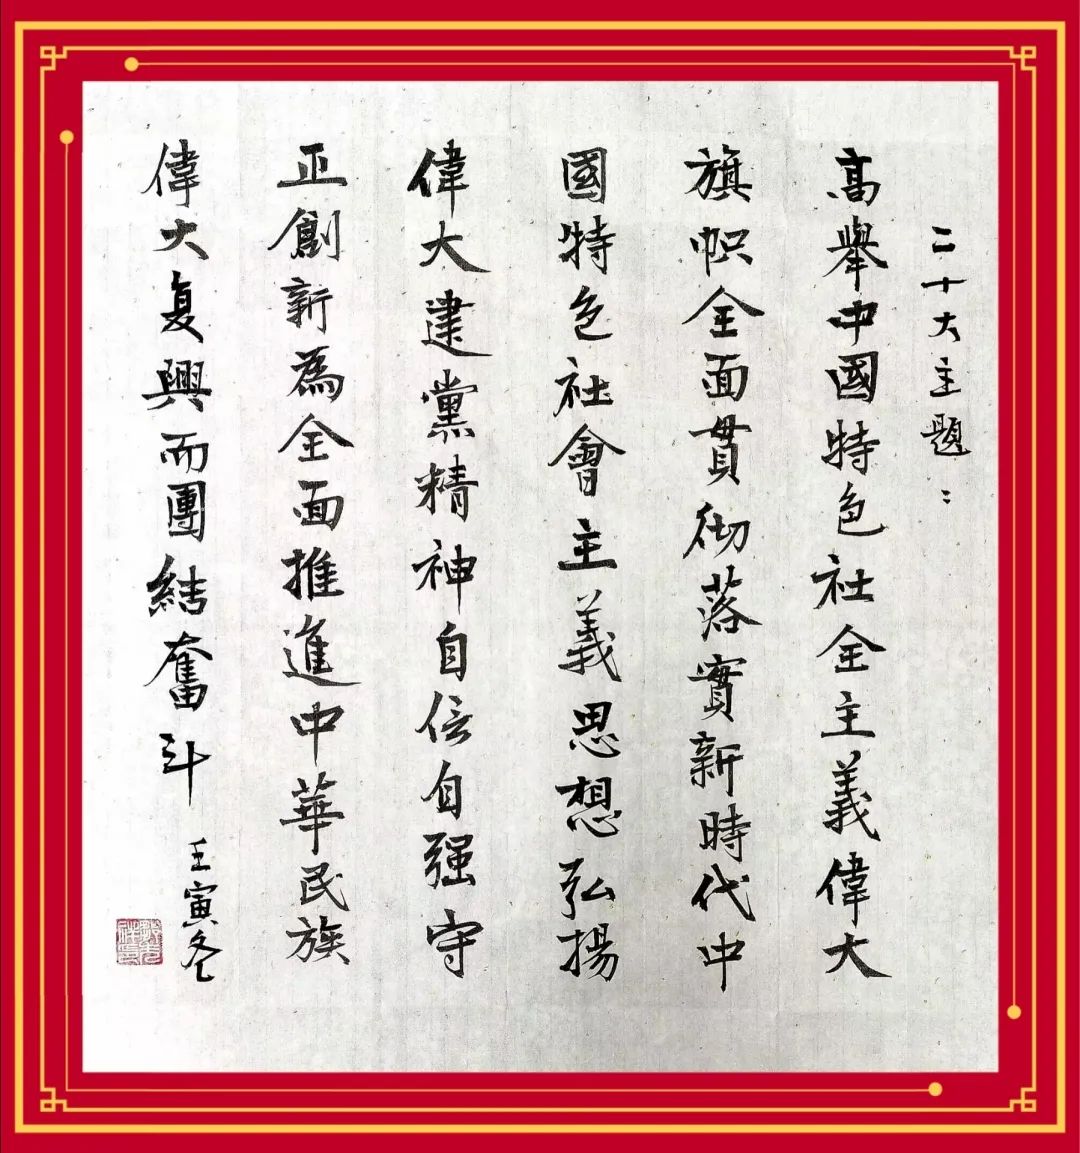 二十大主題：
高舉中國特色社全主義偉大
旗帜全面貫彻落實新時代中
國特色社會主義思想弘揚
偉大建黨精神自信自强守
正創新為全面推進中華民族
偉大复興而團結奮斗
壬寅冬